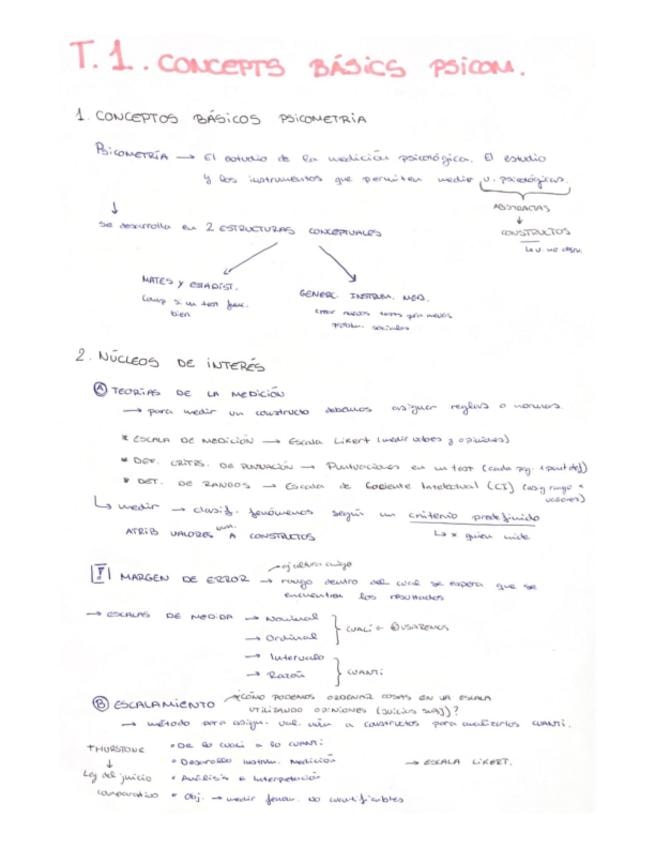 T.1. CONCEPTS BÁSICS PSICOM.
1. CONCEPTOS BÁSICOS PSICOMETRÍA
PSICOMETRÍA → El estudio de la medición psicológica. El estudio
y los instrumentos que permiten medir v. psicológicas.
ABSTRACTAS
↓
CONSTRUCTOS
↓
se desarrolla en 2 ESTRUCTURAS CONCEPTUALES
MATES Y ESTADÍST.
bien
GENERC. INSTRUM. MED.
crear nuevos tests para nuevos
sociales
2. NÚCLEOS DE INTERÉS
Ⓐ TEORÍAS DE LA MEDICIÓN
→ para medir un constructo debemos asignar reglas o normas.
* ESCALA DE MEDICIÓN → Escala Likert (medir y opiniones)
* DEF. DE PUNTUACIÓN → Puntuaciones en un test (cada
* DET. DE RANGOS → Escala de Cociente Intelectual (CI)
valores)
↳ medir → clasif. fenómenos según un criterio predefinido
ATRIB VALORES num. A CONSTRUCTOS
↳ x quien mide
MARGEN DE ERROR → rango dentro del cual se espera que se
encuentren los resultados
→ ESCALAS DE MEDIDA → Nominal
→ Ordinal
CUALI
→ Intervalo
→ Razón
CUANTI
Ⓑ ESCALAMIENTO
¿CÓMO PODEMOS ORDENAR COSAS EN UA ESCALA
UTILIZANDO OPINIONES (juicios subj)?
→ método para asign. val. núm a constructos para analizarlos CUANTI.
THURSTONE
↓
Ley del juicio
comparativo
• De lo cuali a lo CUANTI
• Desarrollo instrum. Medición
→ ESCALA LIKERT.
• Análisis e Interpretación
• Obj. → medir fenóm. No cuantificables